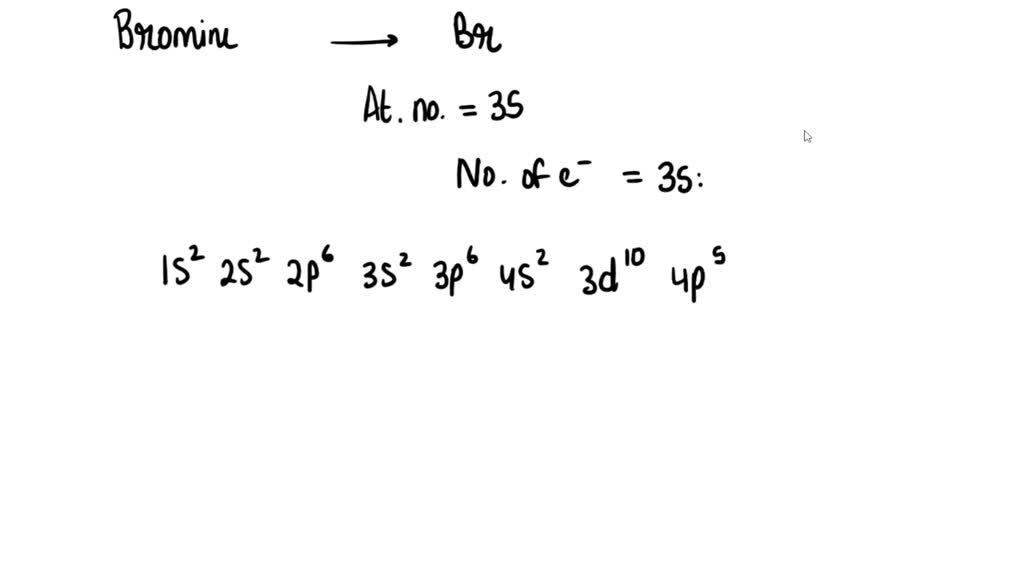 Bromine → Br
At. no. = 35
No. of e⁻ = 35:
1s² 2s² 2p⁶ 3s² 3p⁶ 4s² 3d¹⁰ 4p⁵